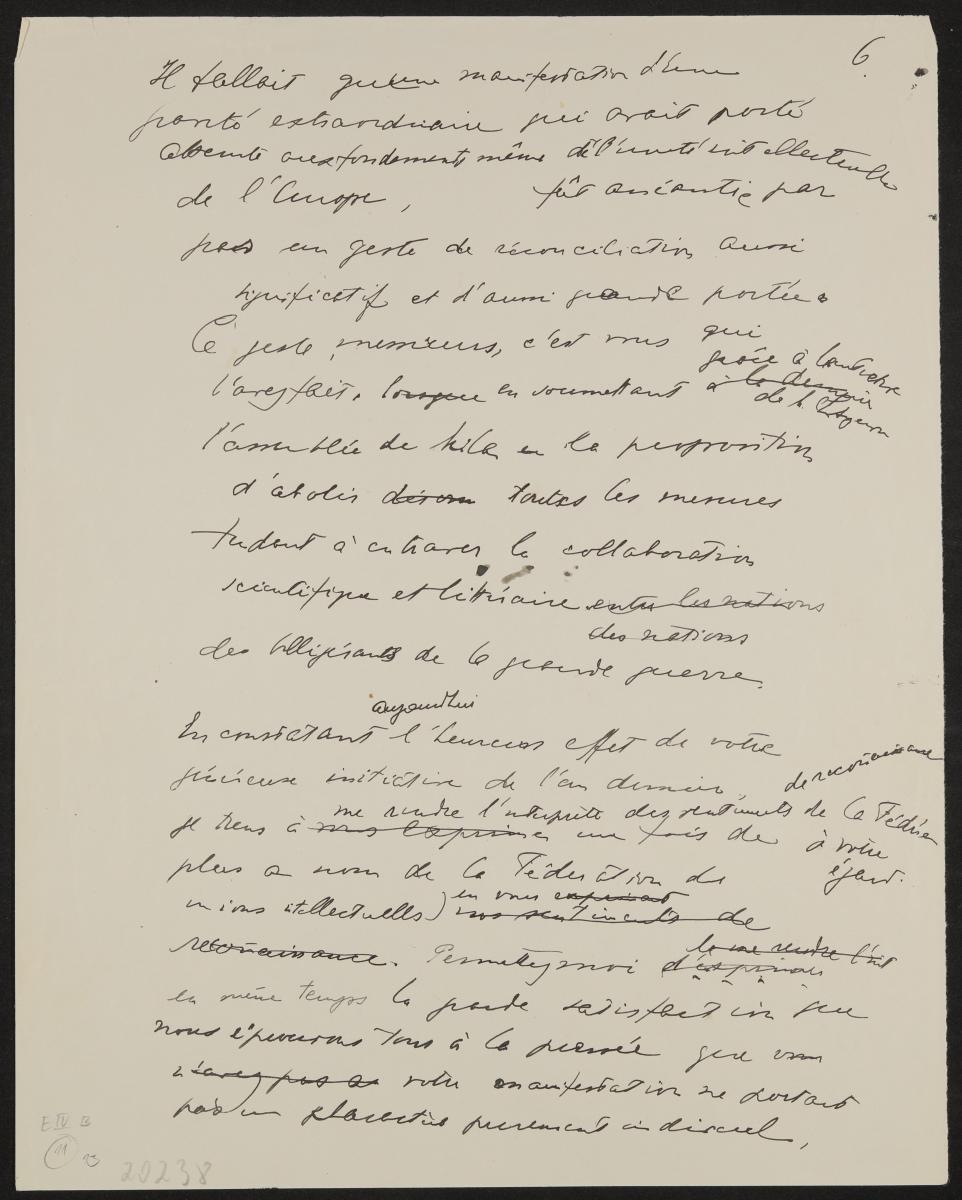 6
Il fallait qu'une manifestation d'une
extraordinaire qui avait porté
atteinte aux fondements même de l'unité intellectuelle
de l'Europe, fût anéantie par
par un geste de réconciliation aussi
significatif et d'aussi grande portée.
Ce geste, messieurs, c'est vous qui
grâce à
l'avez fait, lorsque en soumettant à
de
l'assemblée de la proposition
d'abolir toutes les mesures
tendant à entraver la collaboration
scientifique et littéraire entre les nations
des nations
des belligérants de la grande guerre.
aujourdhui
En constatant l'heureux effet de votre
généreuse initiative de l'an dernier, de reconnaissance
me rendre l'interprète des sentiments de la Fédération
je tiens à vous exprimer une fois de à votre
plus au nom de la Fédération des égard.
unions intellectuelles) en vous exprimant
nos sentiments de
reconnaissance. Permettez moi d'exprimer
en même temps la grande satisfaction que
nous éprouvons tous à la pensée que
n'avez pas votre manifestation ne portant
pas un caractère purement individuel,
E IV B
11
23
20238